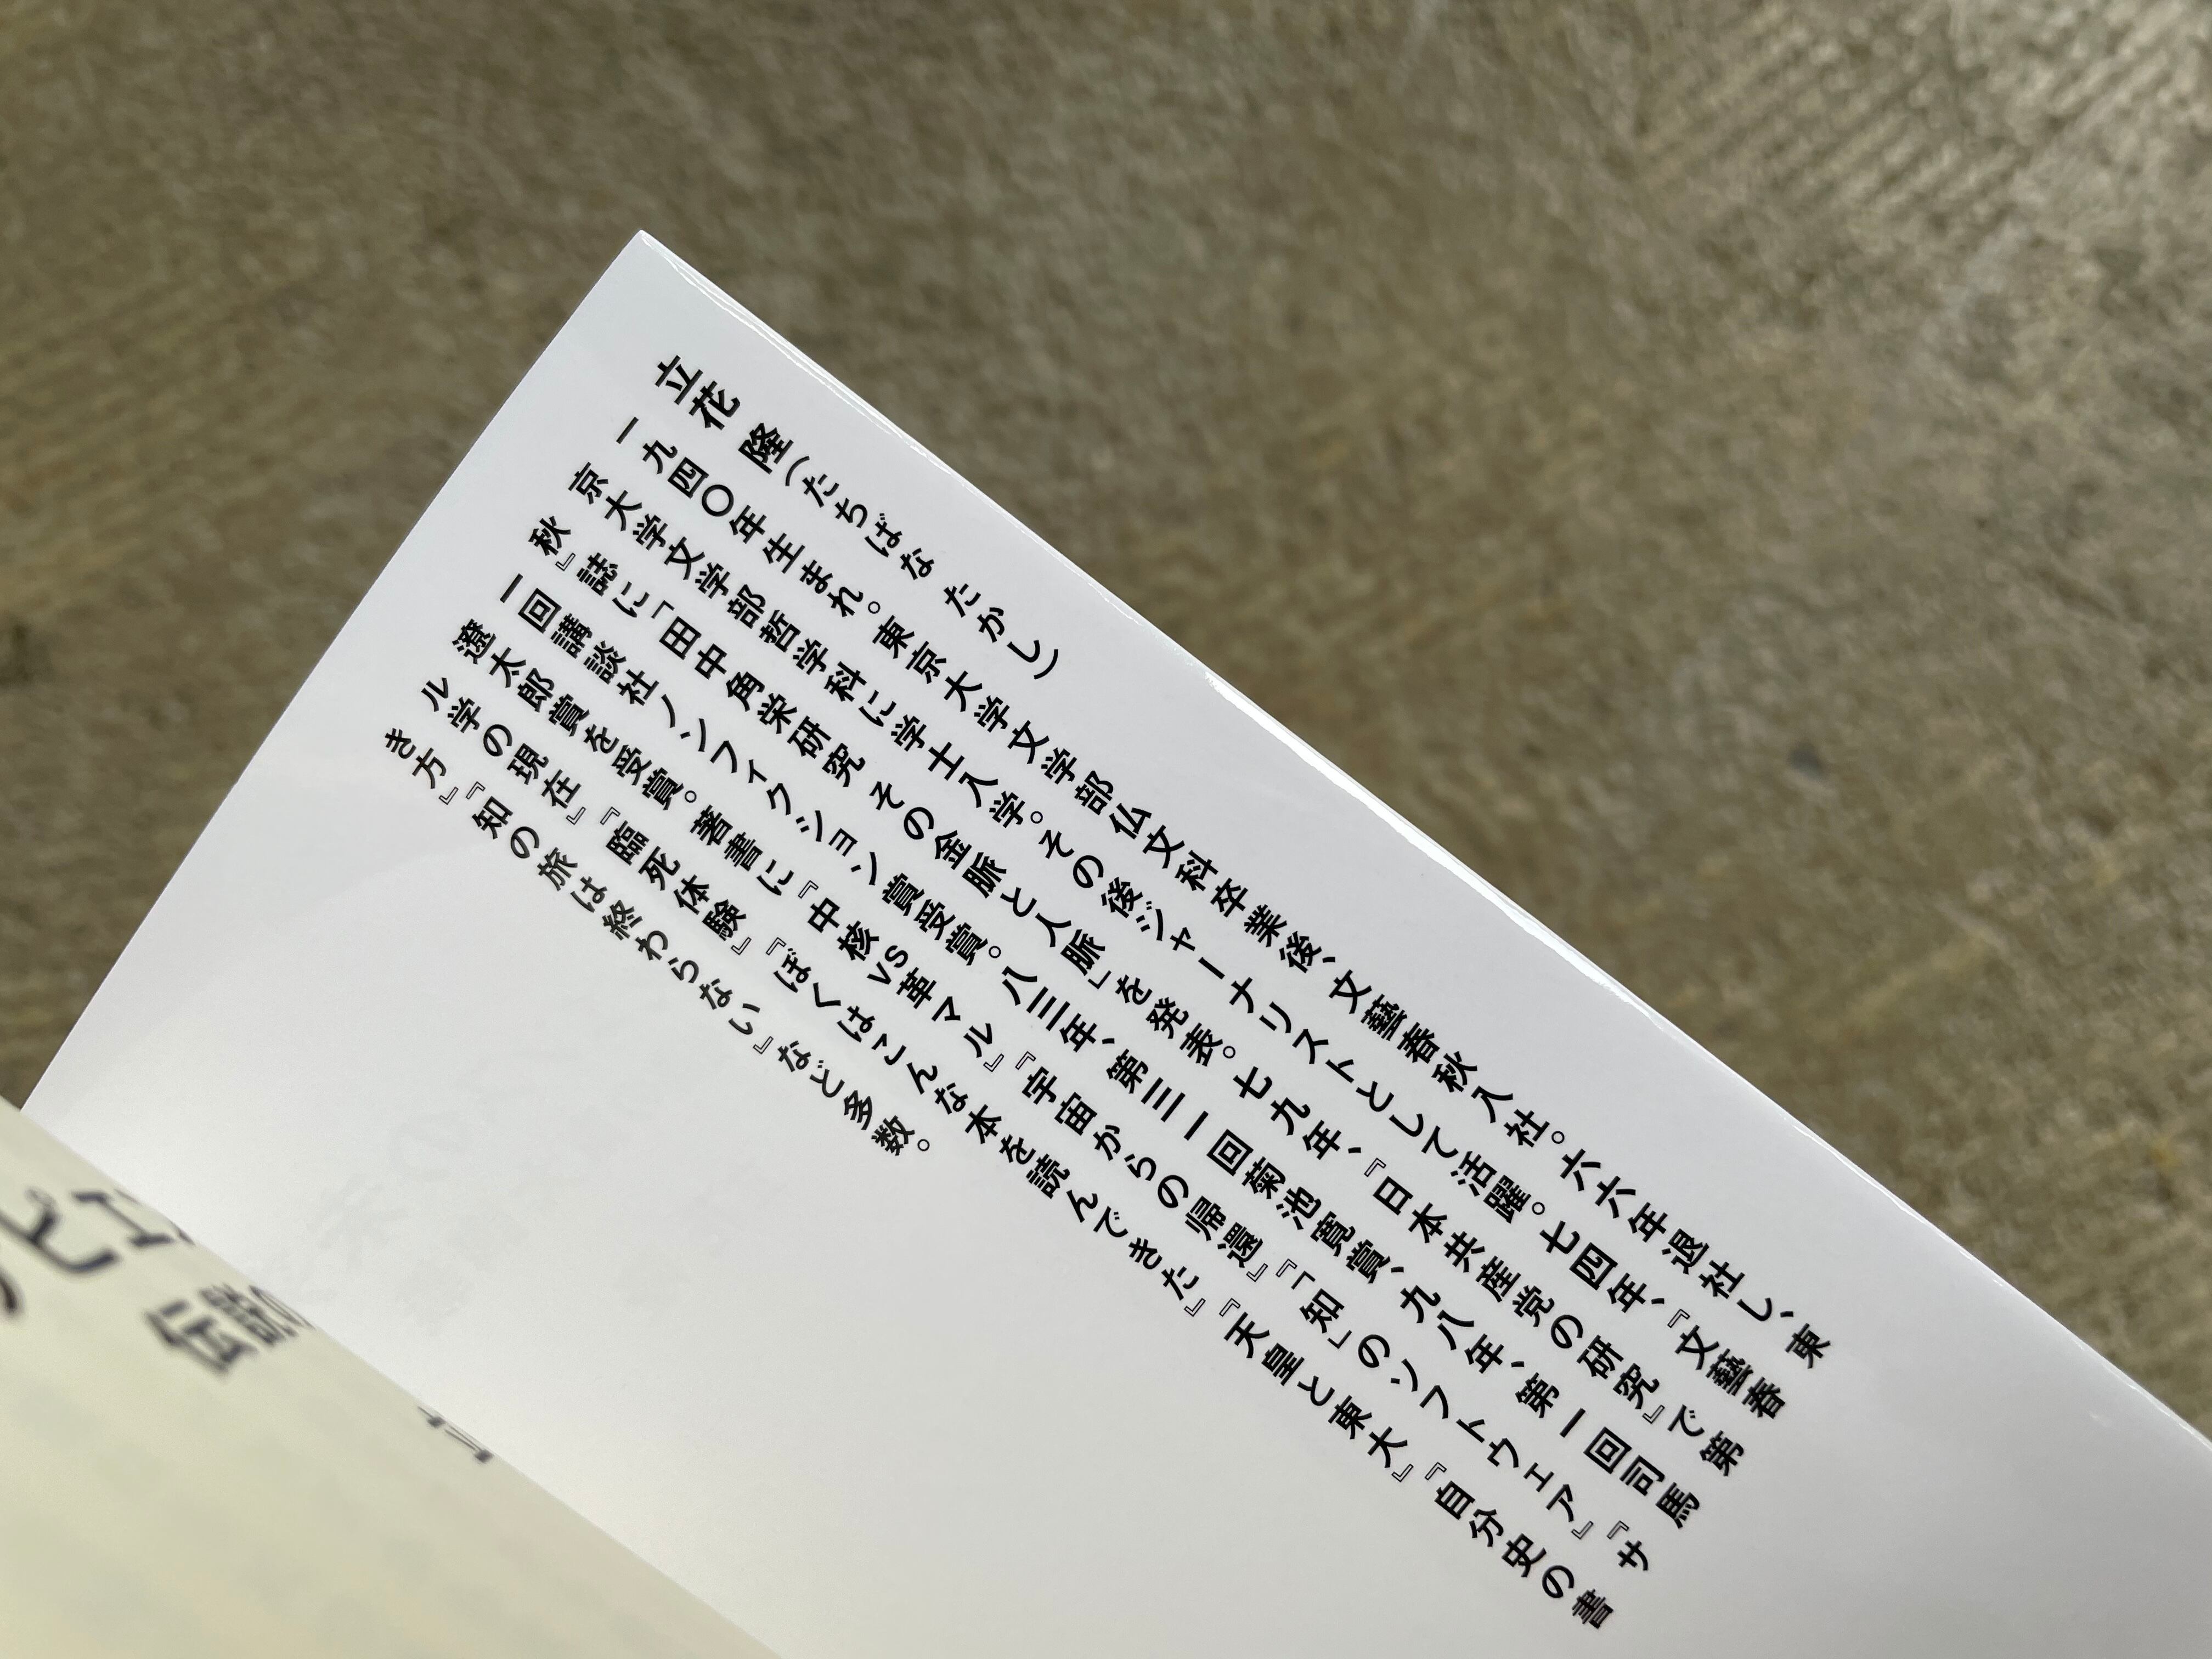 立花 隆(たちばな たかし)
一九四〇年生まれ。東京大学文学部仏文科卒業後、文藝春秋入社。六六年退社し、東
京大学文学部哲学科に学士入学。その後ジャーナリストとして活躍。七四年、『文藝春
秋』誌に「田中角栄研究 その金脈と人脈」を発表。七九年、『日本共産党の研究』で第
一回講談社ノンフィクション賞受賞。八三年、第三一回菊池寛賞、九八年、第一回司馬
遼太郎賞を受賞。著書に『中核VS革マル』『宇宙からの帰還』『「知」のソフトウェア』『サ
ル学の現在』『臨死体験』『ぼくはこんな本を読んできた』『天皇と東大』『自分史の書
き方』『知の旅は終わらない』など多数。
伝説の